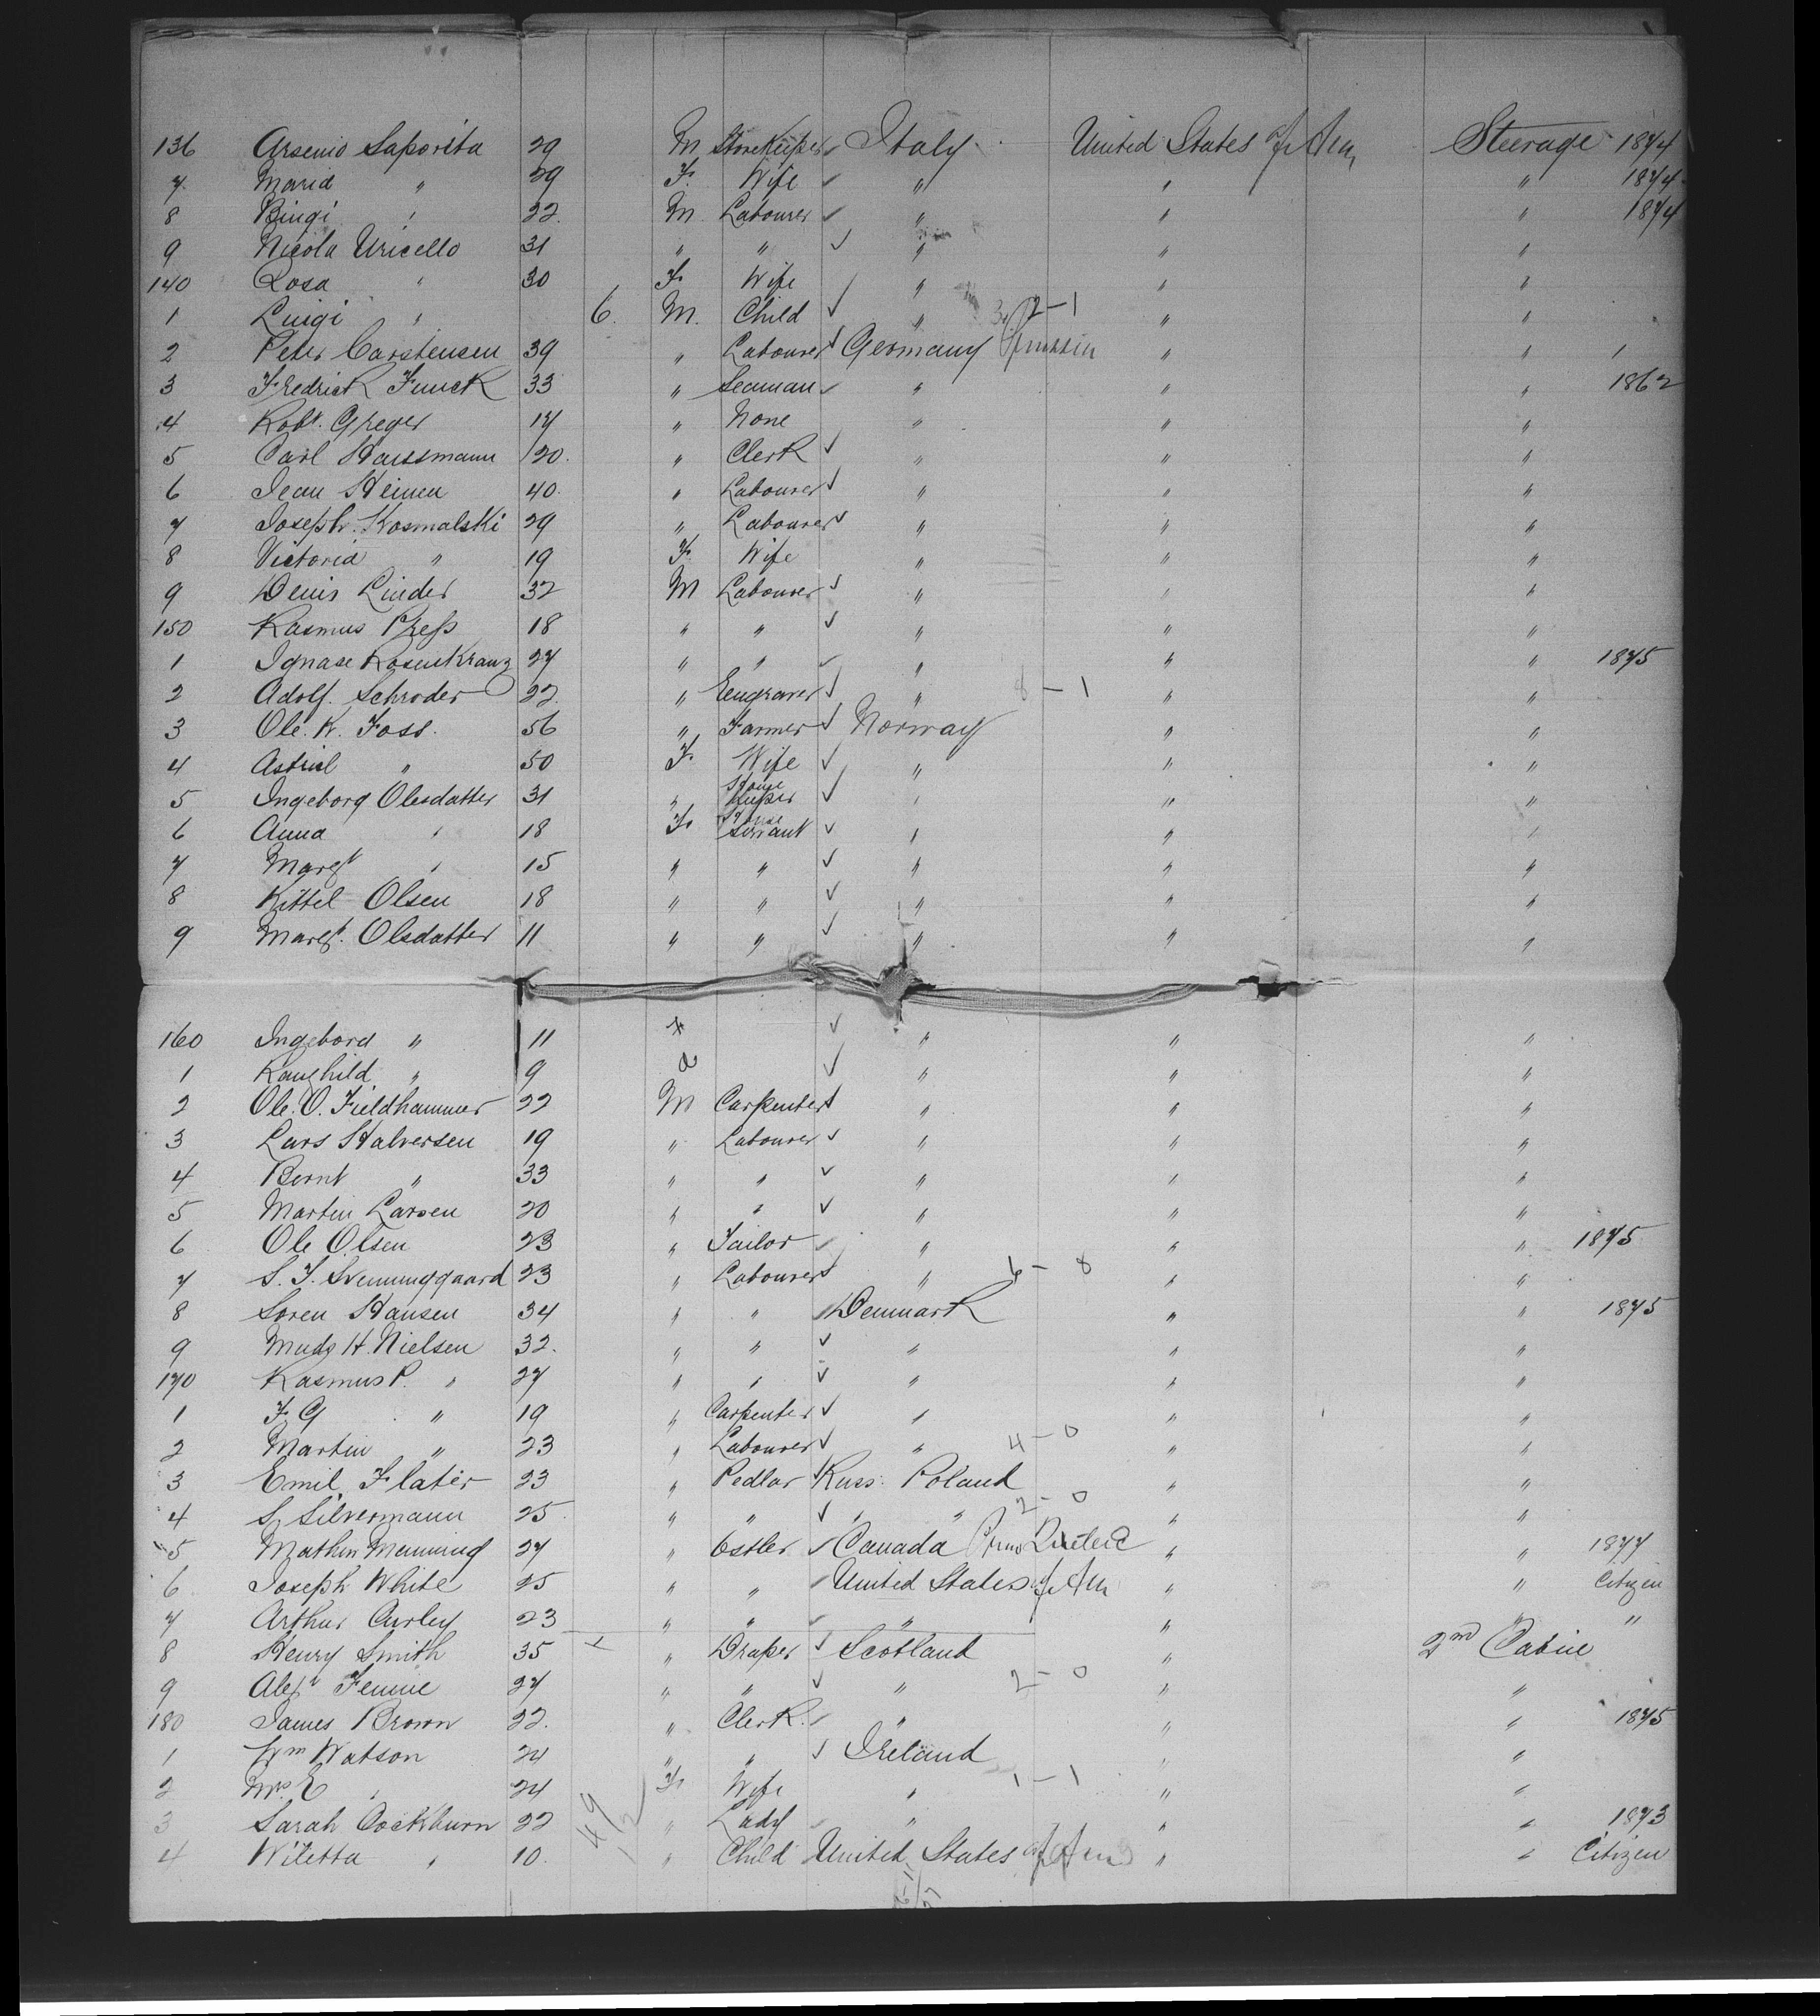 136 Arsenio Saporita 29 M Storekeeper Italy United States of Am Steerage 1874
7 Maria " 29 F. Wife " " " 1874
8 Biugi " 22. M. Labourer " " " 1874
9 Nicola Uricello 31 " " " " "
140 Rosa " 30 F. Wife " " "
1 Luigi " 6. M. Child " 2-1 " "
2 Peter Carstensen 39 " Labourer Germany Prussia " "
3 Fredrick Funck 33 " Seaman " " " 1862
4 Robt. Greger 17 " None " " "
5 Carl Haussmann 20. " Clerk " " "
6 Jean Heinen 40. " Labourer " " "
7 Joseph Kosmalski 29 " Labourer " " "
8 Victoria " 19 F. Wife " " "
9 Denis Linder 32 M Labourer " " "
150 Rasmus Press 18 " " " " "
1 Ignase Rosenkranz 27 " " " " " 1875
2 Adolf. Schroder 22. " Eengraver " 8-1 " "
3 Ole. K. Foss. 56 " Farmer Norway " "
4 Astrid " 50 F. Wife " " "
5 Ingeborg Olesdatter 31 " House Keeper " " "
6 Anna " 18 F. House Servant " " "
7 Margt " 15 " " " " "
8 Kittel Olsen 18 " " " " "
9 Margt. Olsdatter 11 " " " " "
160 Ingebord " 11 " " "
1 Raughild " 9 " " "
2 Ole. O. Fieldhammer 22 M Carpenter " " "
3 Lars Halversen 19 " Labourer " " "
4 Bernt " 33 " " " " "
5 Martin Larsen 20 " " " " "
6 Ole Olsen 23 " Tailor " " " 1875
7 S. J. Svenninggaard 23 " Labourer " 6-8 " "
8 Soren Hansen 34 " " Denmark " " 1875
9 Muds H. Nielsen 32. " " " " "
170 Rasmus P. " 27 " " " " "
1 F. G " 19 " Carpenter " " "
2 Martin " 23 " Labourer " 4-0 " "
3 Emil Flater 23 " Pedlar Russ. Poland " "
4 S. Silvermann 25 " " " " 2-0 " "
5 Mathew Manning 27 " Ostler Canada " " 1877
6 Joseph White 25 " " United States of Am " " Citizen
7 Arthur Curley 23 " " " " " "
8 Henry Smith 35 " Draper Scotland " 2nd Cabin
9 Alexr Fennie 27 " " " 2-0 " "
180 James Brown 22. " Clerk. " " " 1875
1 Wm Watson 24 " " Ireland " "
2 Mrs E " 24 F. Wife " 1-1 " "
3 Sarah Cockburn 22 " Lady " " " 1873
4 Wiletta " 10. " Child United States of Am " " Citizen